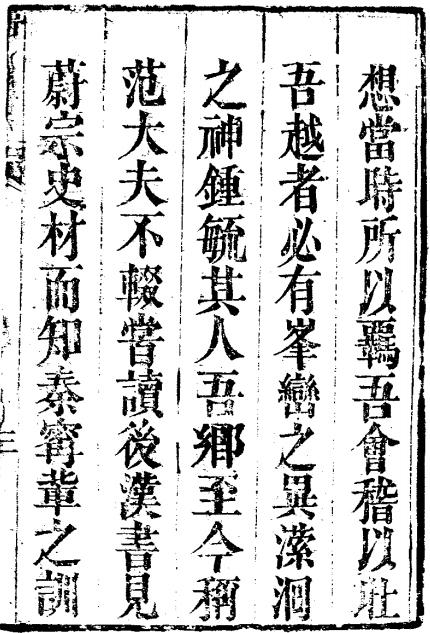 想當時所以羈吾會稽以耻
吾越者必有峯巒之異瀠洄
之神鍾毓其人吾鄉至今稱
范大夫不輟嘗讀後漢書見
蔚宗史材而知泰寗輩之訓